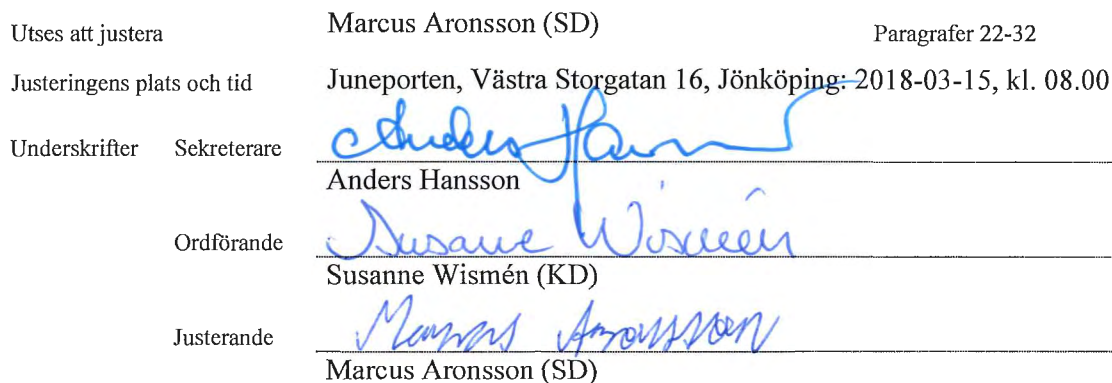 Utses att justera Marcus Aronsson (SD) Paragrafer 22-32
Justeringens plats och tid Juneporten, Västra Storgatan 16, Jönköping: 2018-03-15, kl. 08.00
Underskrifter Sekreterare Anders Hansson
Anders Hansson
Ordförande Susanne Wismén
Susanne Wismén (KD)
Justerande Marcus Aronsson
Marcus Aronsson (SD)